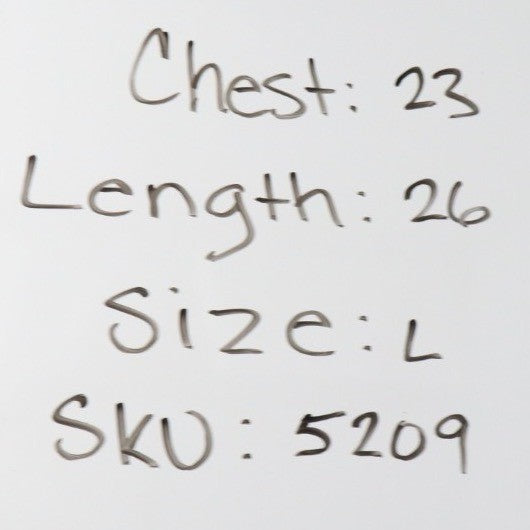 Chest: 23
Length: 26
Size: L
SKU: 5209